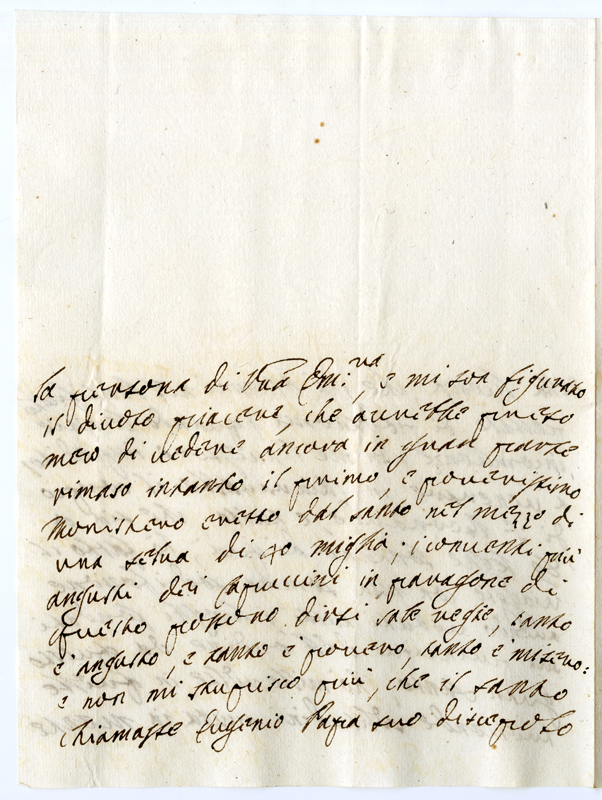 la persona di Vrã Em:za, e mi son figurato
il divoto piacere, che avrebbe preso
meco di vedere ancora in gran parte
rimaso intanto il primo, e poverissimo
Monistero eretto dal santo nel mezzo di
una selva di 40 miglia; i conventi più
angusti dei Capuccini in paragone di
questo possono dirsi sale regie, tanto
è angusto, e tanto è povero, tanto è misero:
e non mi stupisco più, che il santo
chiamasse Eugenio Papa suo discepolo